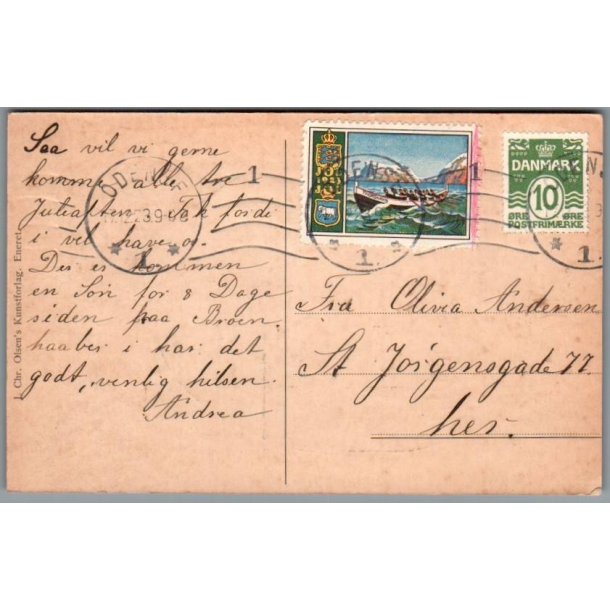 Saa vil vi gerne
komme alle tre
Juleaften. Tak fordi
i vil have os.
Der er kommen
en Søn for 8 Dage
siden paa Broen.
haaber i har det
godt, venlig hilsen.
Andrea
J. Chr. Olsen's Kunstforlag. Eneret.
ODENSE
1
1
JUL
DANMARK
10
ØRE ØRE
POSTFRIMÆRKE
ODENSE
1
1
1.
Fra Olivia Andersen
St Jørgensgade 77
her.